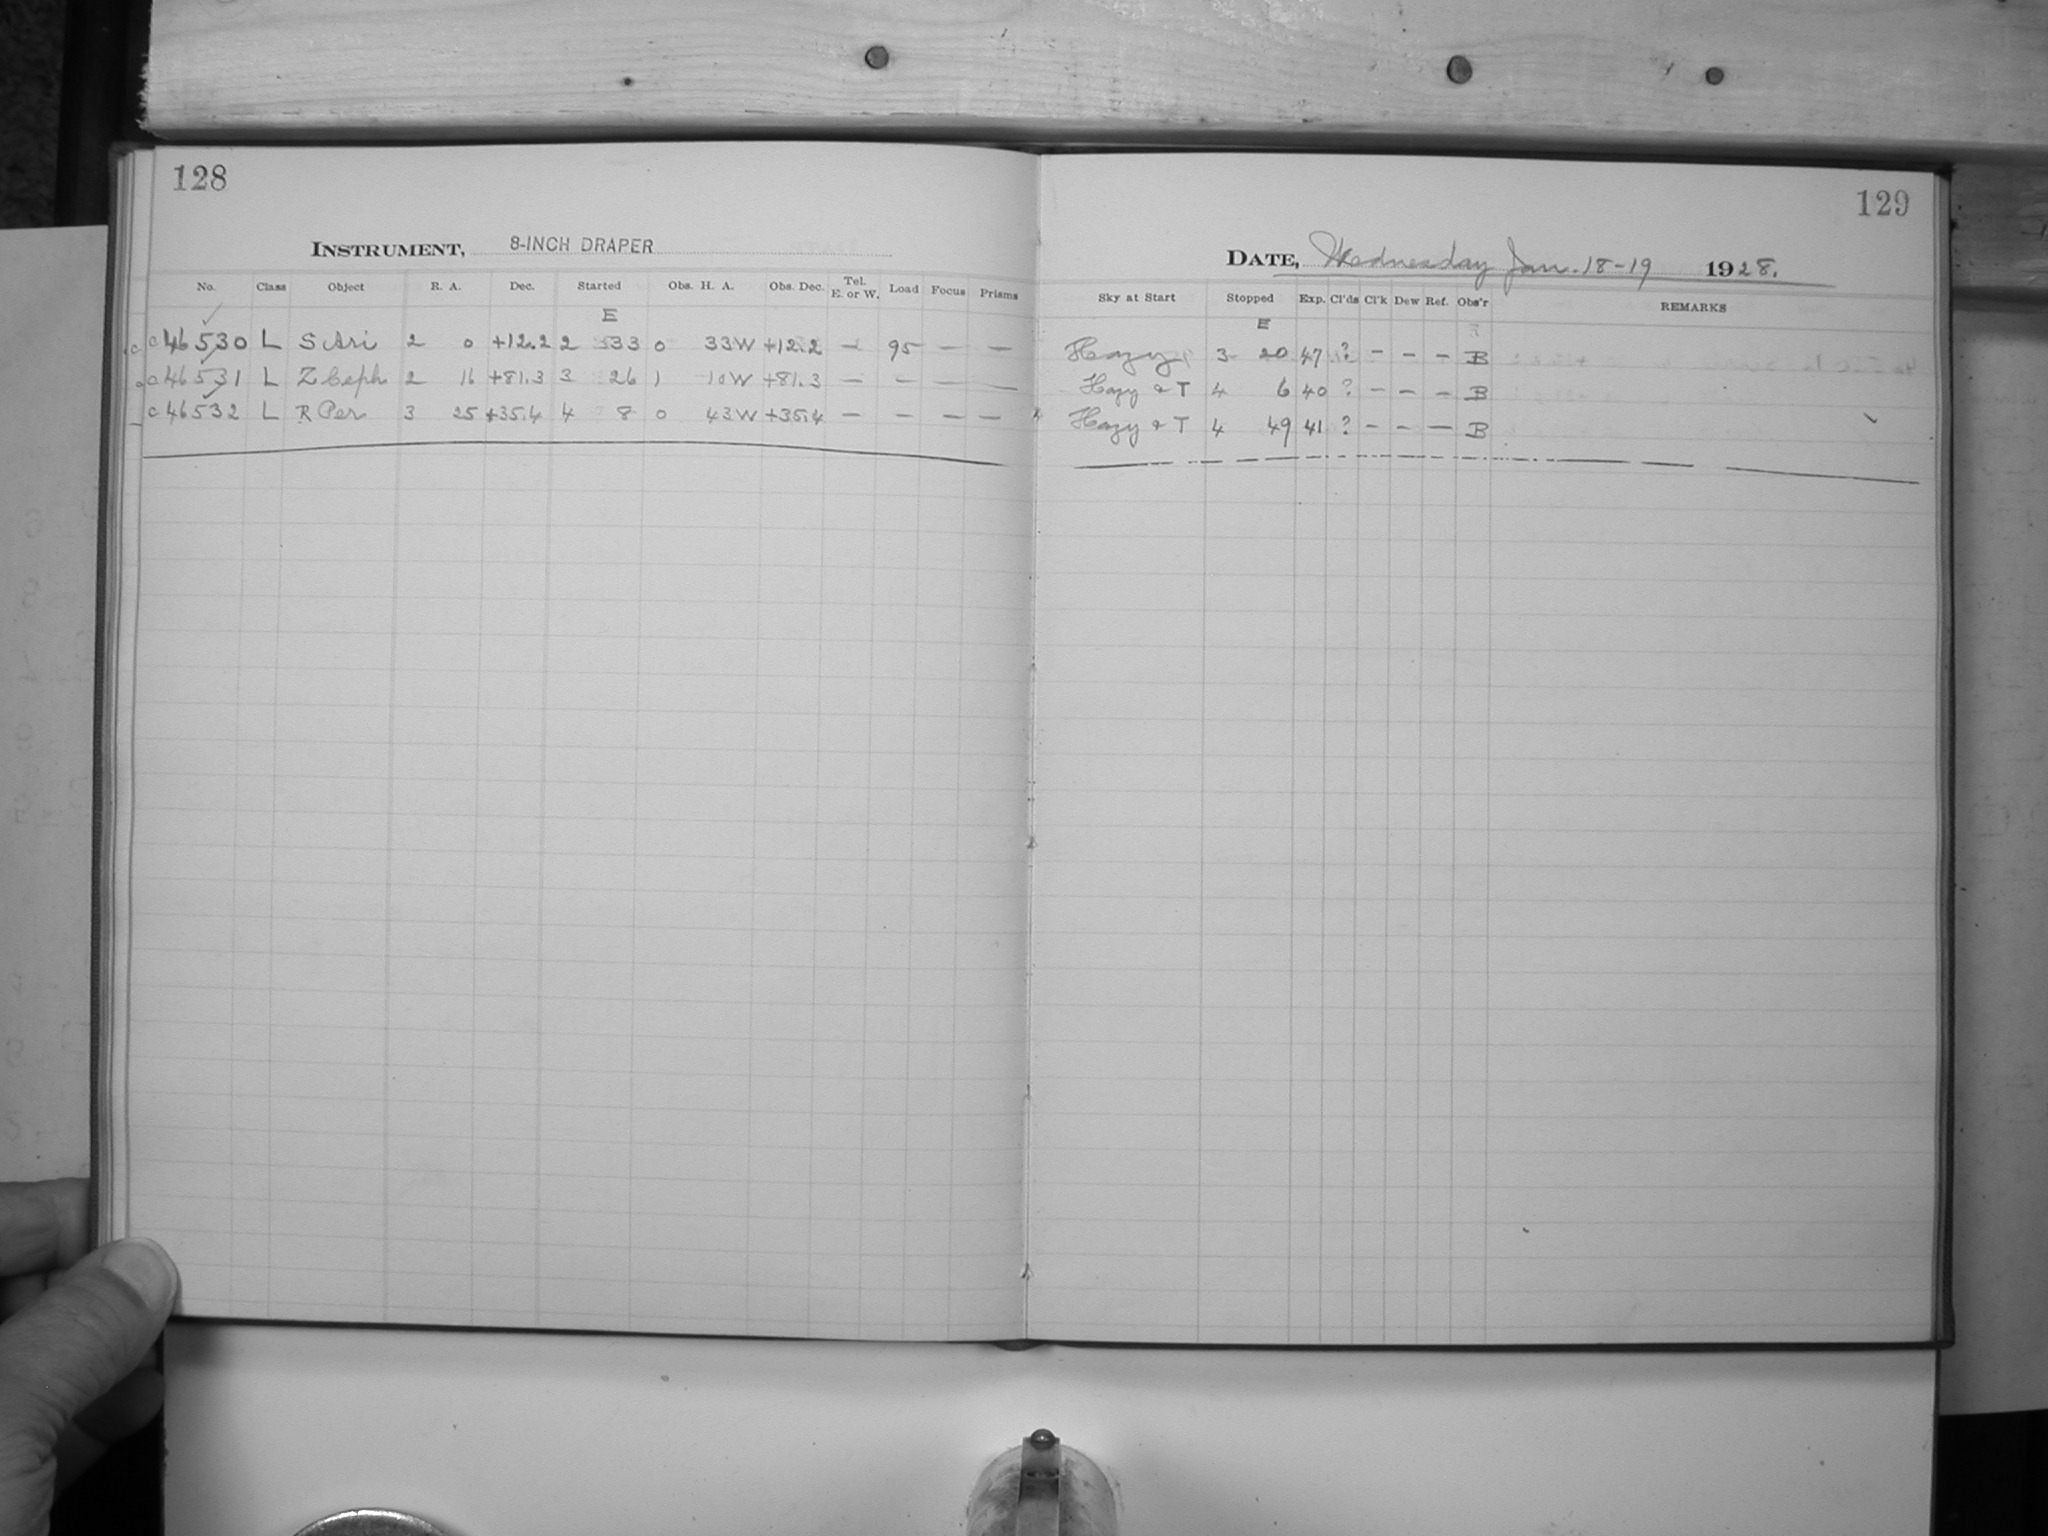 128
INSTRUMENT, 8-INCH DRAPER
No. Class Object R. A. Dec. Started Obs. H. A. Obs. Dec. Tel. E. or W. Load Focus Prisms
E
c46530 L S Ari 2 0 +12.2 2 33 0 33W +12.2 — 95 — —
c46531 L Z Ceph 2 16 +81.3 3 26 1 10W +81.3 — — — —
c46532 L R Per 3 25 +35.4 4 8 0 43W +35.4 — — — —
129
DATE, Wednesday Jan. 18-19 1928.
Sky at Start Stopped Exp. Cl'ds Cl'k Dew Ref. Obs'r REMARKS
E
Hazy 3 20 47 ? — — — B
Hazy & T 4 6 40 ? — — — B
Hazy & T 4 49 41 ? — — — B